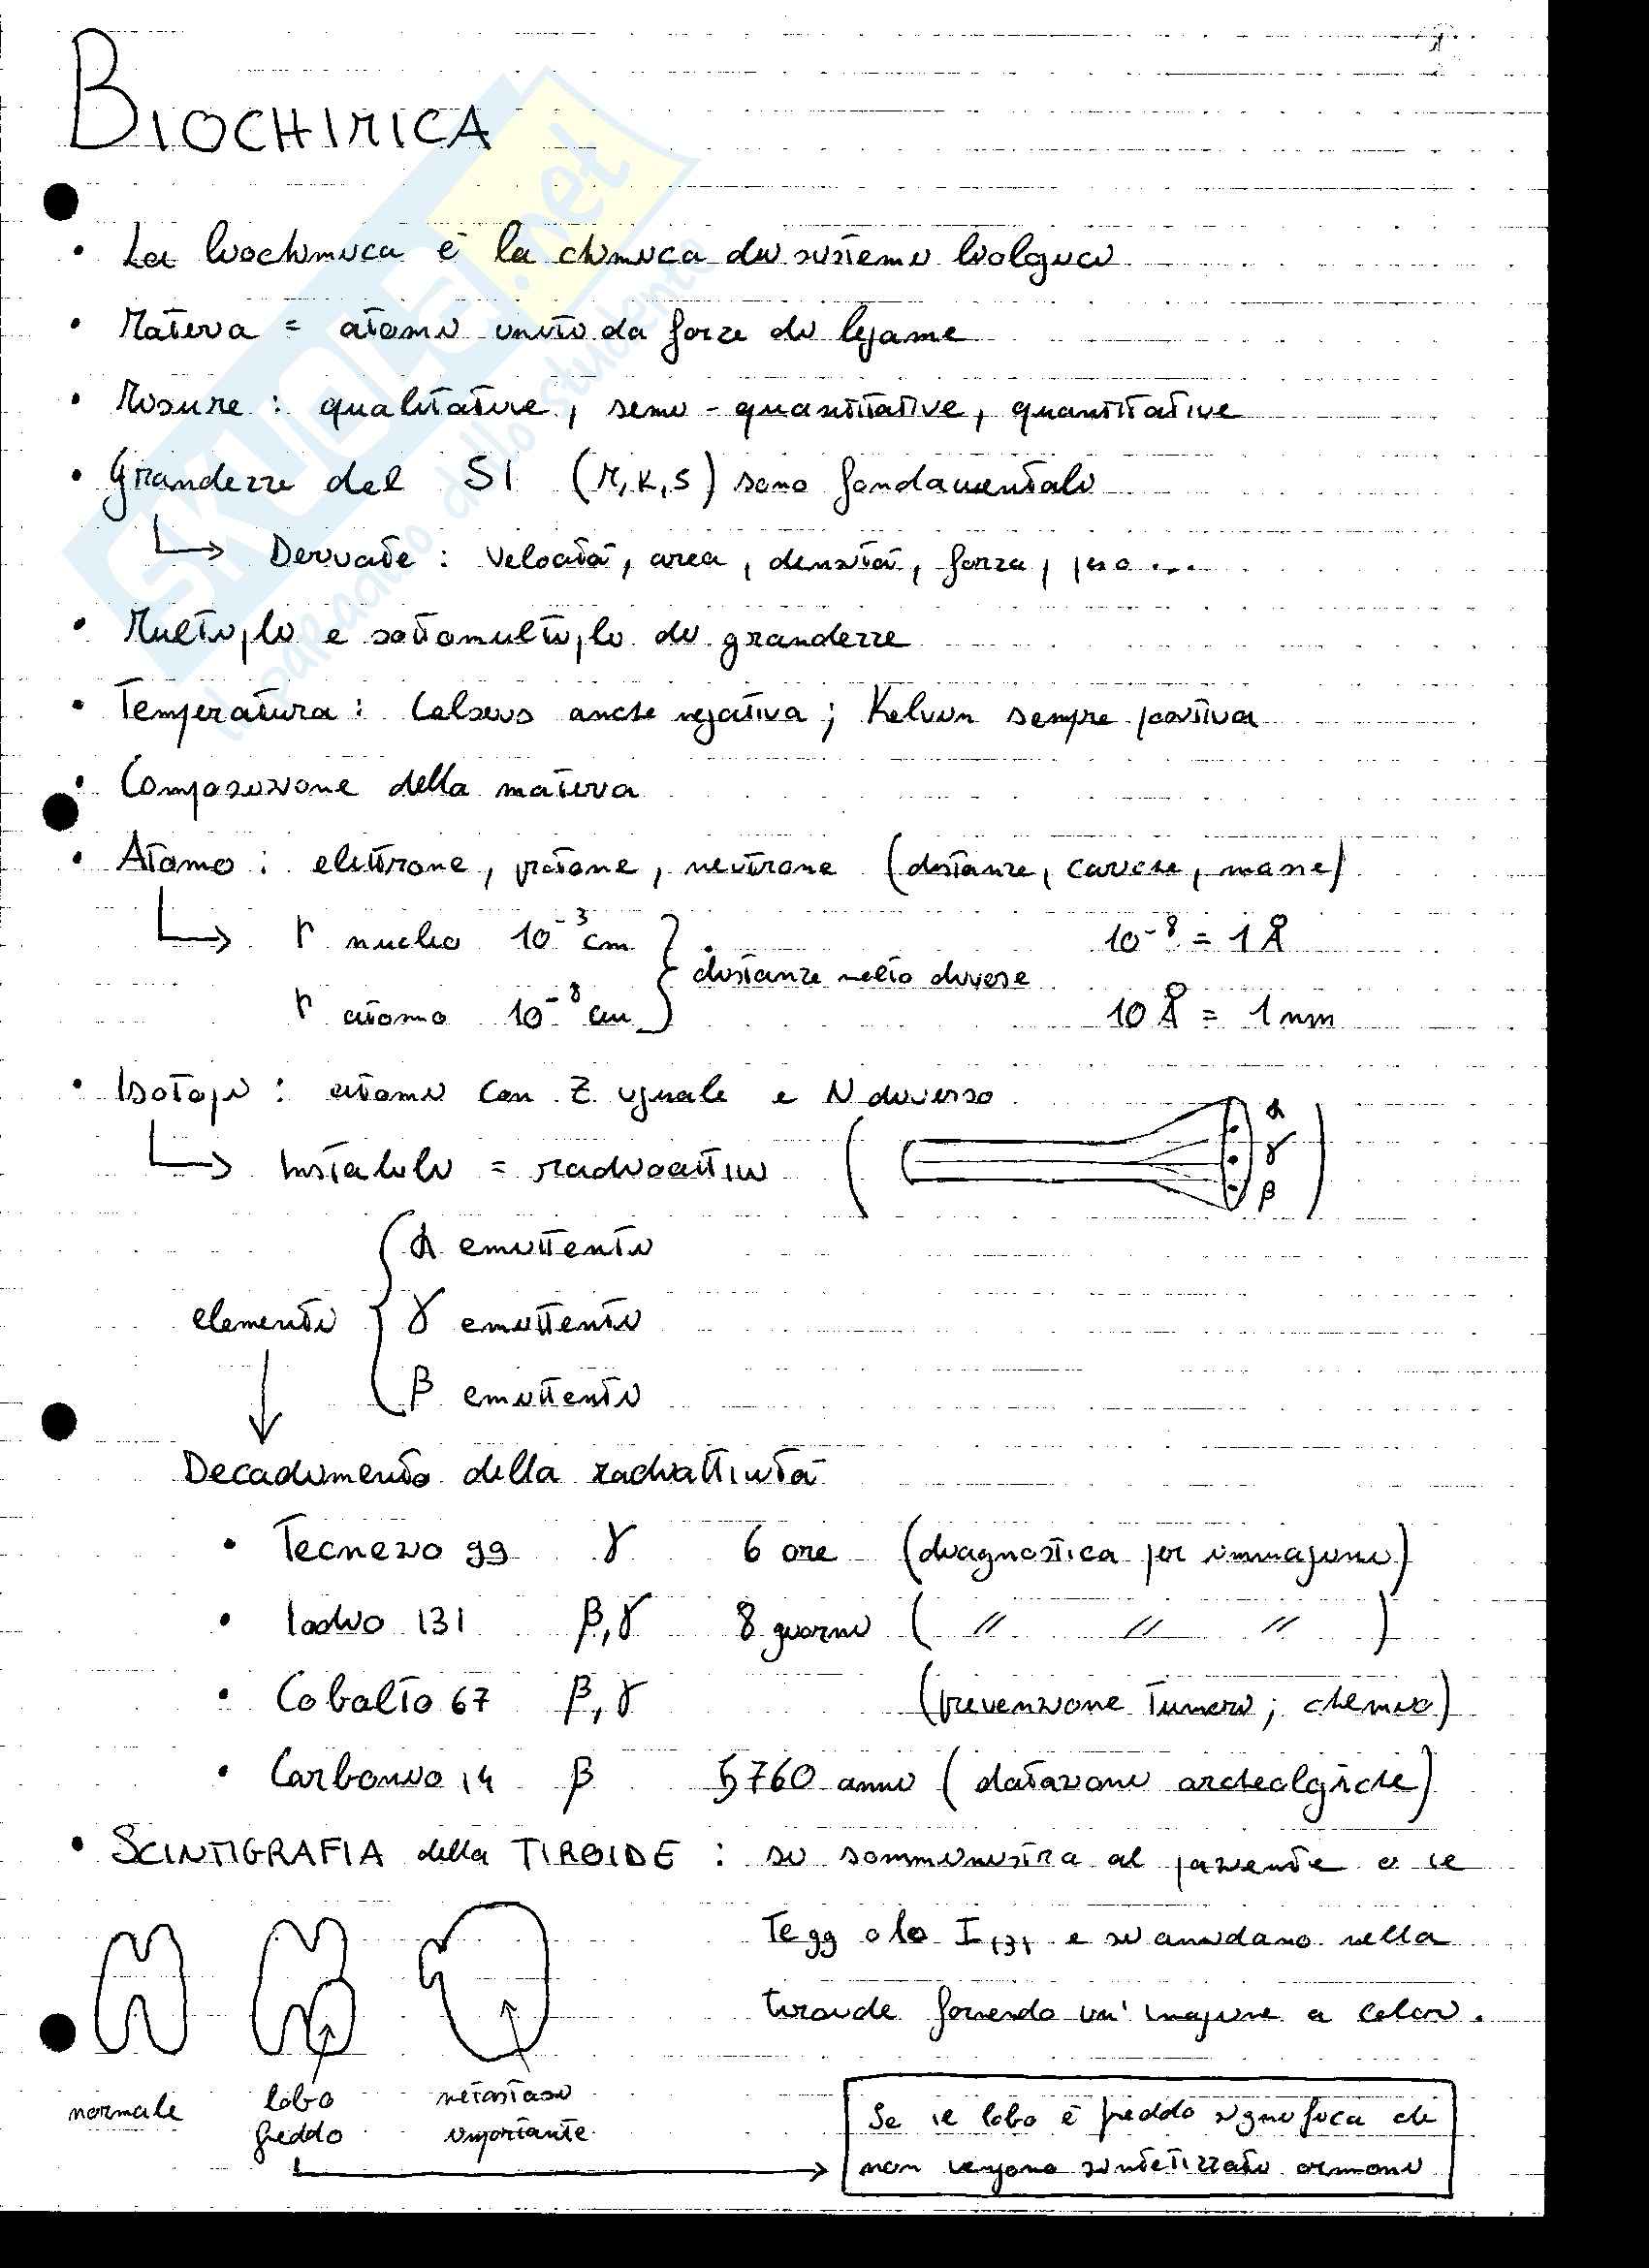 BIOCHIMICA
• La biochimica è la chimica dei sistemi biologici
• Materia = atomi uniti da forze di legame
• Misure : qualitative, semi-quantitative, quantitative
• Grandezze del SI (M, K, S) sono fondamentali
↳ Derivate : velocità, area, densità, forza, peso ...
• Multipli e sottomultipli di grandezze
• Temperatura : Celsius anche negativa ; Kelvin sempre positiva
• Composizione della materia
• Atomo : elettrone, protone, neutrone (distanze, cariche, masse)
↳ r nucleo 10⁻³ cm } distanze molto diverse 10⁻⁸ = 1 Å
r atomo 10⁻⁸ cm 10 Å = 1 nm
• Isotopi : atomi con Z uguale e N diverso
↳ Instabili = radioattivi ( α γ β )
elementi { α emittenti
γ emittenti
β emittenti
Decadimento della radiattività
• Tecnezio 99 γ 6 ore (diagnostica per immagini)
• Iodio 131 β, γ 8 giorni ( // // // )
• Cobalto 67 β, γ (prevenzione tumori; chemio)
• Carbonio 14 β 5760 anni (datazioni archeolgiche)
• SCINTIGRAFIA della TIROIDE : si somministra al paziente o il
Te 99 o lo I 131 e si annidano nella
tiroide fornendo un'imagine a colori.
normale
lobo freddo
metastasi importante
Se il lobo è freddo significa che
non vengono sintetizzati ormoni
SKUOLA.net
il paradiso dello studente